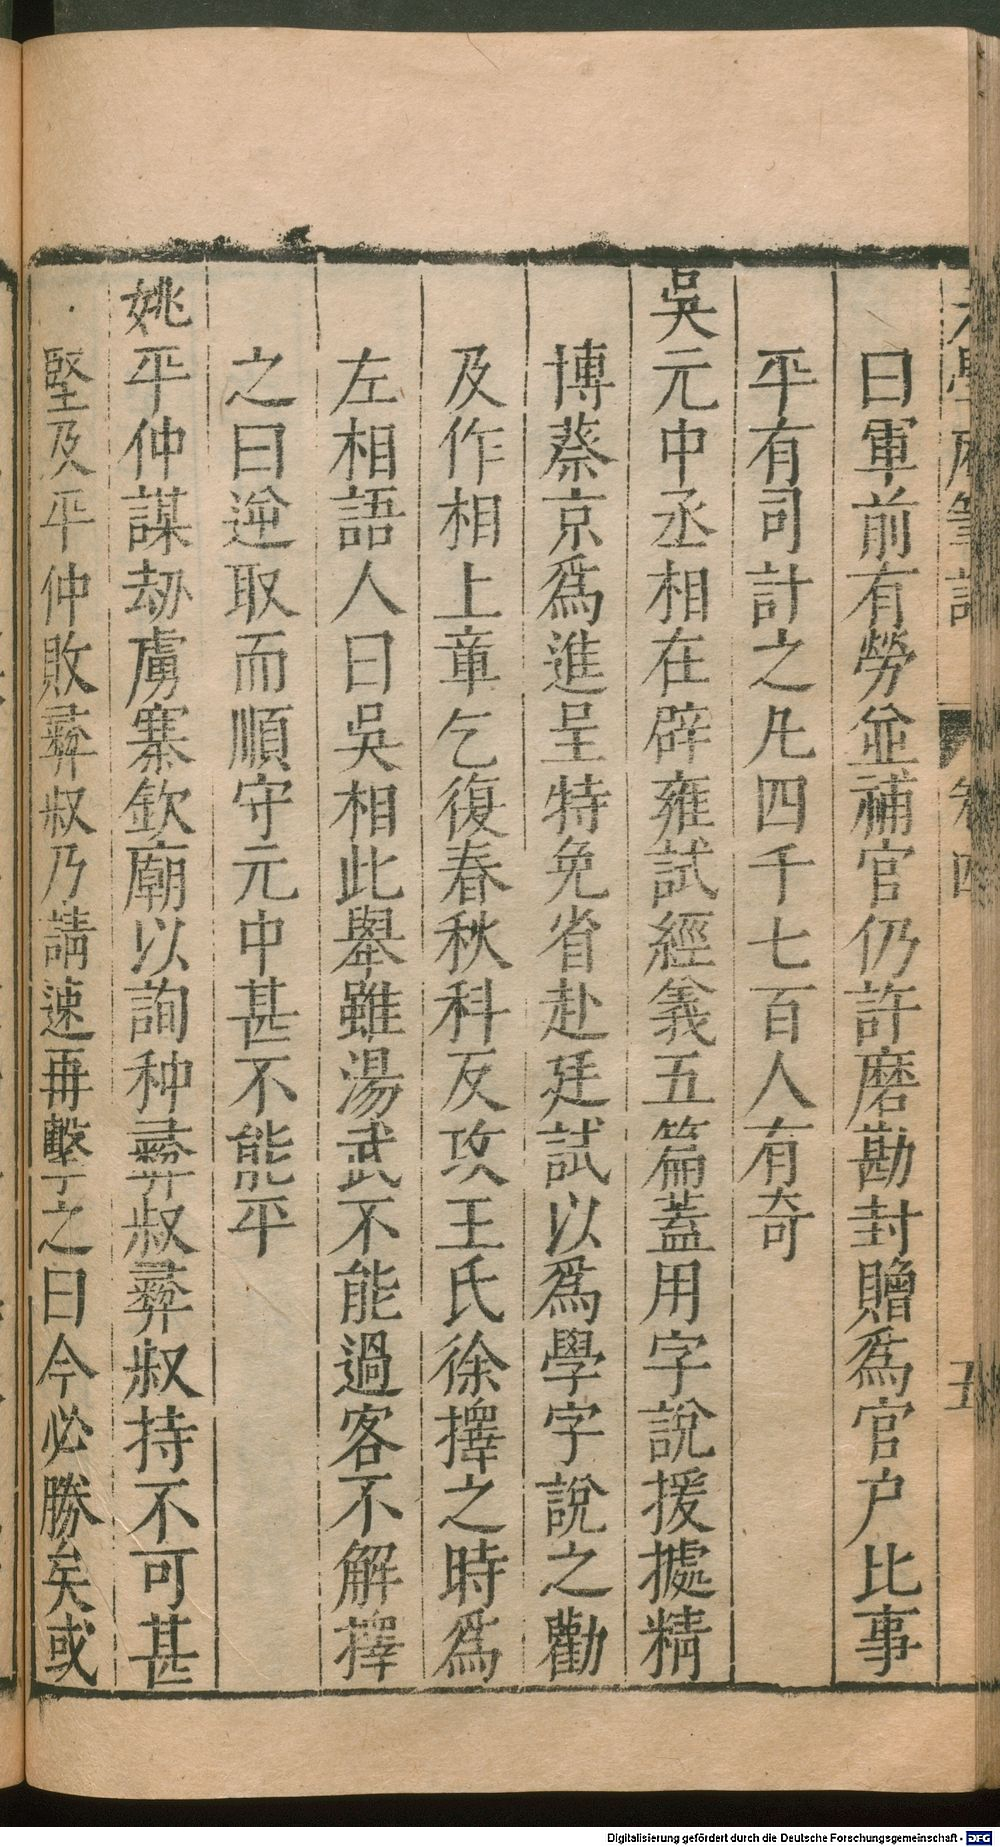 老學庵筆記 卷四 五
曰軍前有勞並補官仍許磨勘封贈爲官户比事
平有司計之凡四千七百人有奇
吳元中丞相在辟雍試經義五篇蓋用字說援據精
博蔡京爲進呈特免省赴廷試以爲學字說之勸
及作相上章乞復春秋科反攻王氏徐擇之時爲
左相語人曰吳相此舉雖湯武不能過客不解擇
之曰逆取而順守元中甚不能平
姚平仲謀刼虜寨欽廟以詢种彛叔彛叔持不可甚
堅及平仲敗彛叔乃請速再擊之曰今必勝矣或
Digitalisierung gefördert durch die Deutsche Forschungsgemeinschaft - DFG